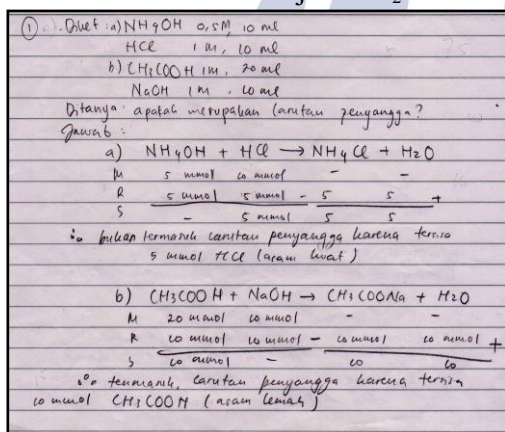 ① Diket : a) NH4OH 0,5M, 10 ml
HCl 1 M, 10 ml
b) CH3COOH 1M, 20 ml
NaOH 1 M, 10 ml
Ditanya : apakah merupakan larutan penyangga ?
Jawab :
a) NH4OH + HCl → NH4Cl + H2O
M 5 mmol 10 mmol - -
R 5 mmol 5 mmol - 5 5 +
S - 5 mmol 5 5
∴ bukan termasuk larutan penyangga karena tersisa
5 mmol HCl (asam kuat)
b) CH3COOH + NaOH → CH3COONa + H2O
M 20 mmol 10 mmol - -
R 10 mmol 10 mmol - 10 mmol 10 mmol +
S 10 mmol - 10 10
∴ termasuk, larutan penyangga karena tersisa
10 mmol CH3COOH (asam lemah)